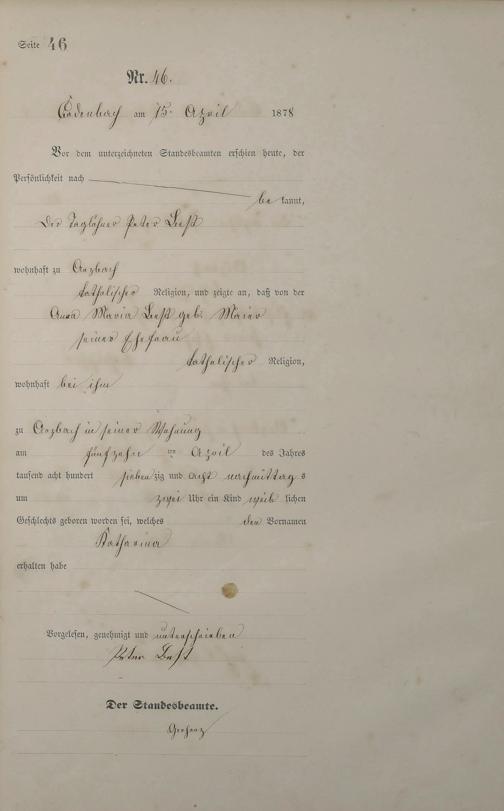 Seite 46
Nr. 46.
am 15. April 1878
Vor dem unterzeichneten Standesbeamten erschien heute, der
Persönlichkeit nach
be kannt,
der Taglöhner Peter
wohnhaft zu Arzbach
katholischer Religion, und zeigte an, daß von der
Anna Maria geb. Maier
seiner Ehefrau
katholischer Religion,
wohnhaft bei ihm
zu Arzbach in seiner Wohnung
am fünfzehn ten April des Jahres
tausend acht hundert siebenzig und acht nachmittag s
um zwei Uhr ein Kind weib lichen
Geschlechts geboren worden sei, welches den Vornamen
Katharina
erhalten habe
Vorgelesen, genehmigt und unterschrieben
Peter
Der Standesbeamte.